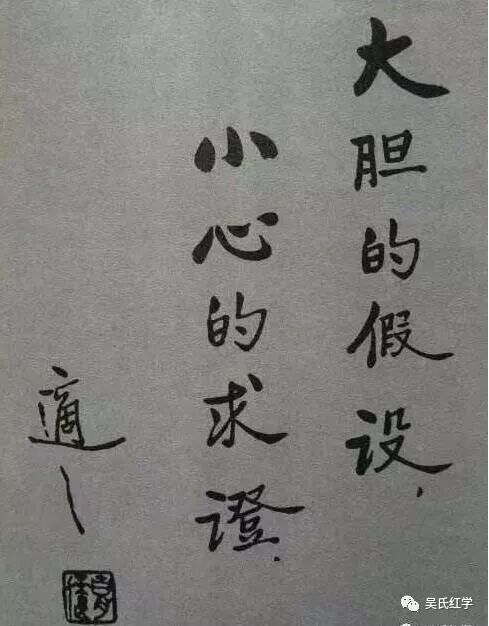 大胆的假设，
小心的求證.
適之
吴氏红学